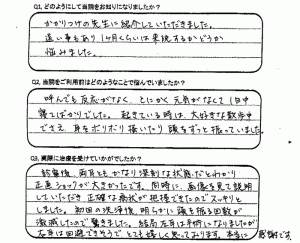 Q1. どのようにして当院をお知りになりましたか?
かかりつけの先生に紹介していただきました。
遠い事もあり1ヶ月くらいは来院するかどうか
悩みました。
Q2. 当院をご利用前はどのようなことで悩んでいましたか?
呼んでも反応がなく、とにかく元気がなくて1日中
寝てばかりでした。起きている時は、大好きな散歩中
でさえ、耳をボリボリ掻いたり頭をずっと振っていました。
Q3. 実際に治療を受けていかがでしたか?
診察後、両耳ともかなり深刻な状態だとわかり
正直ショックが大きかったです。同時に、画像を見て説明
していただき正確な病状が把握できたのでスッキリと
しました。初回の洗浄後、明らかに頭を振る回数が
激減したので驚きました。結局左耳は手術になりましたが
右耳は回避できそうでとても嬉しく思っております。本当に
感謝です。